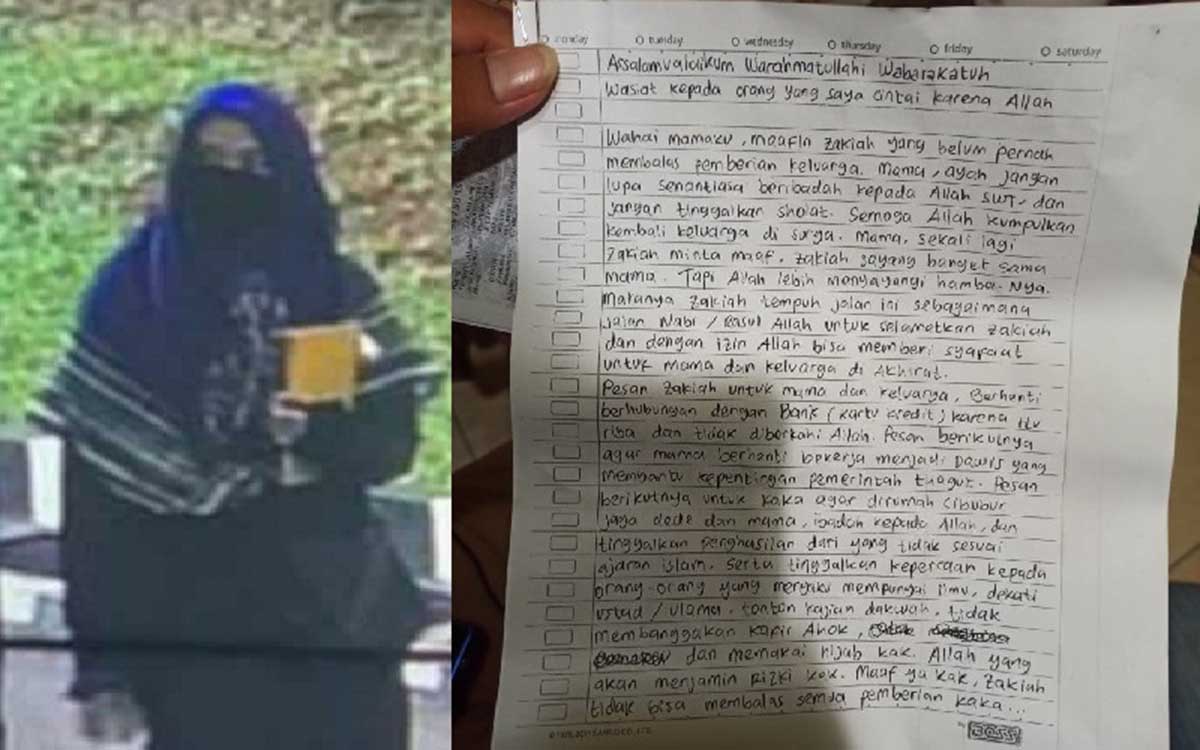 monday tuesday wednesday thursday friday saturday
Assalamualaikum Warahmatullahi Wabarakatuh
Wasiat kepada orang yang saya cintai karena Allah
Wahai mamaku, maafin zakiah yang belum pernah
membalas pemberian keluarga. Mama, ayah jangan
lupa senantiasa beribadah kepada Allah SWT, dan
jangan tinggalkan sholat. Semoga Allah kumpulkan
kembali keluarga di surga. Mama, sekali lagi
Zakiah minta maaf, zakiah sayang banget sama
mama. Tapi Allah lebih menyayangi hamba-Nya.
Makanya zakiah tempuh jalan ini sebagaimana
jalan Nabi / Rasul Allah untuk selametkan zakiah
dan dengan izin Allah bisa memberi syafaat
untuk mama dan keluarga di Akhirat.
Pesan zakiah untuk mama dan keluarga, Berhenti
berhubungan dengan Bank (kartu credit) karena itu
riba dan tidak diberkahi Allah. Pesan berikutnya
agar mama berhenti bekerja menjadi Dawis yang
membantu kepentingan pemerintah thogut. Pesan
berikutnya untuk kaka agar dirumah cibubur
jaga dede dan mama, ibadah kepada Allah, dan
tinggalkan penghasilan dari yang tidak sesuai
ajaran islam. Serta tinggalkan kepercaan kepada
orang-orang yang mengaku mempunyai ilmu, dekati
ustad / ulama, tonton kajian dakwah, tidak
membanggakan kafir Ahok,
dan memakai hijab kak. Allah yang
akan menjamin Rizki kok. Maaf ya kak, zakiah
tidak bisa membalas semua pemberian kaka...
by BOSS